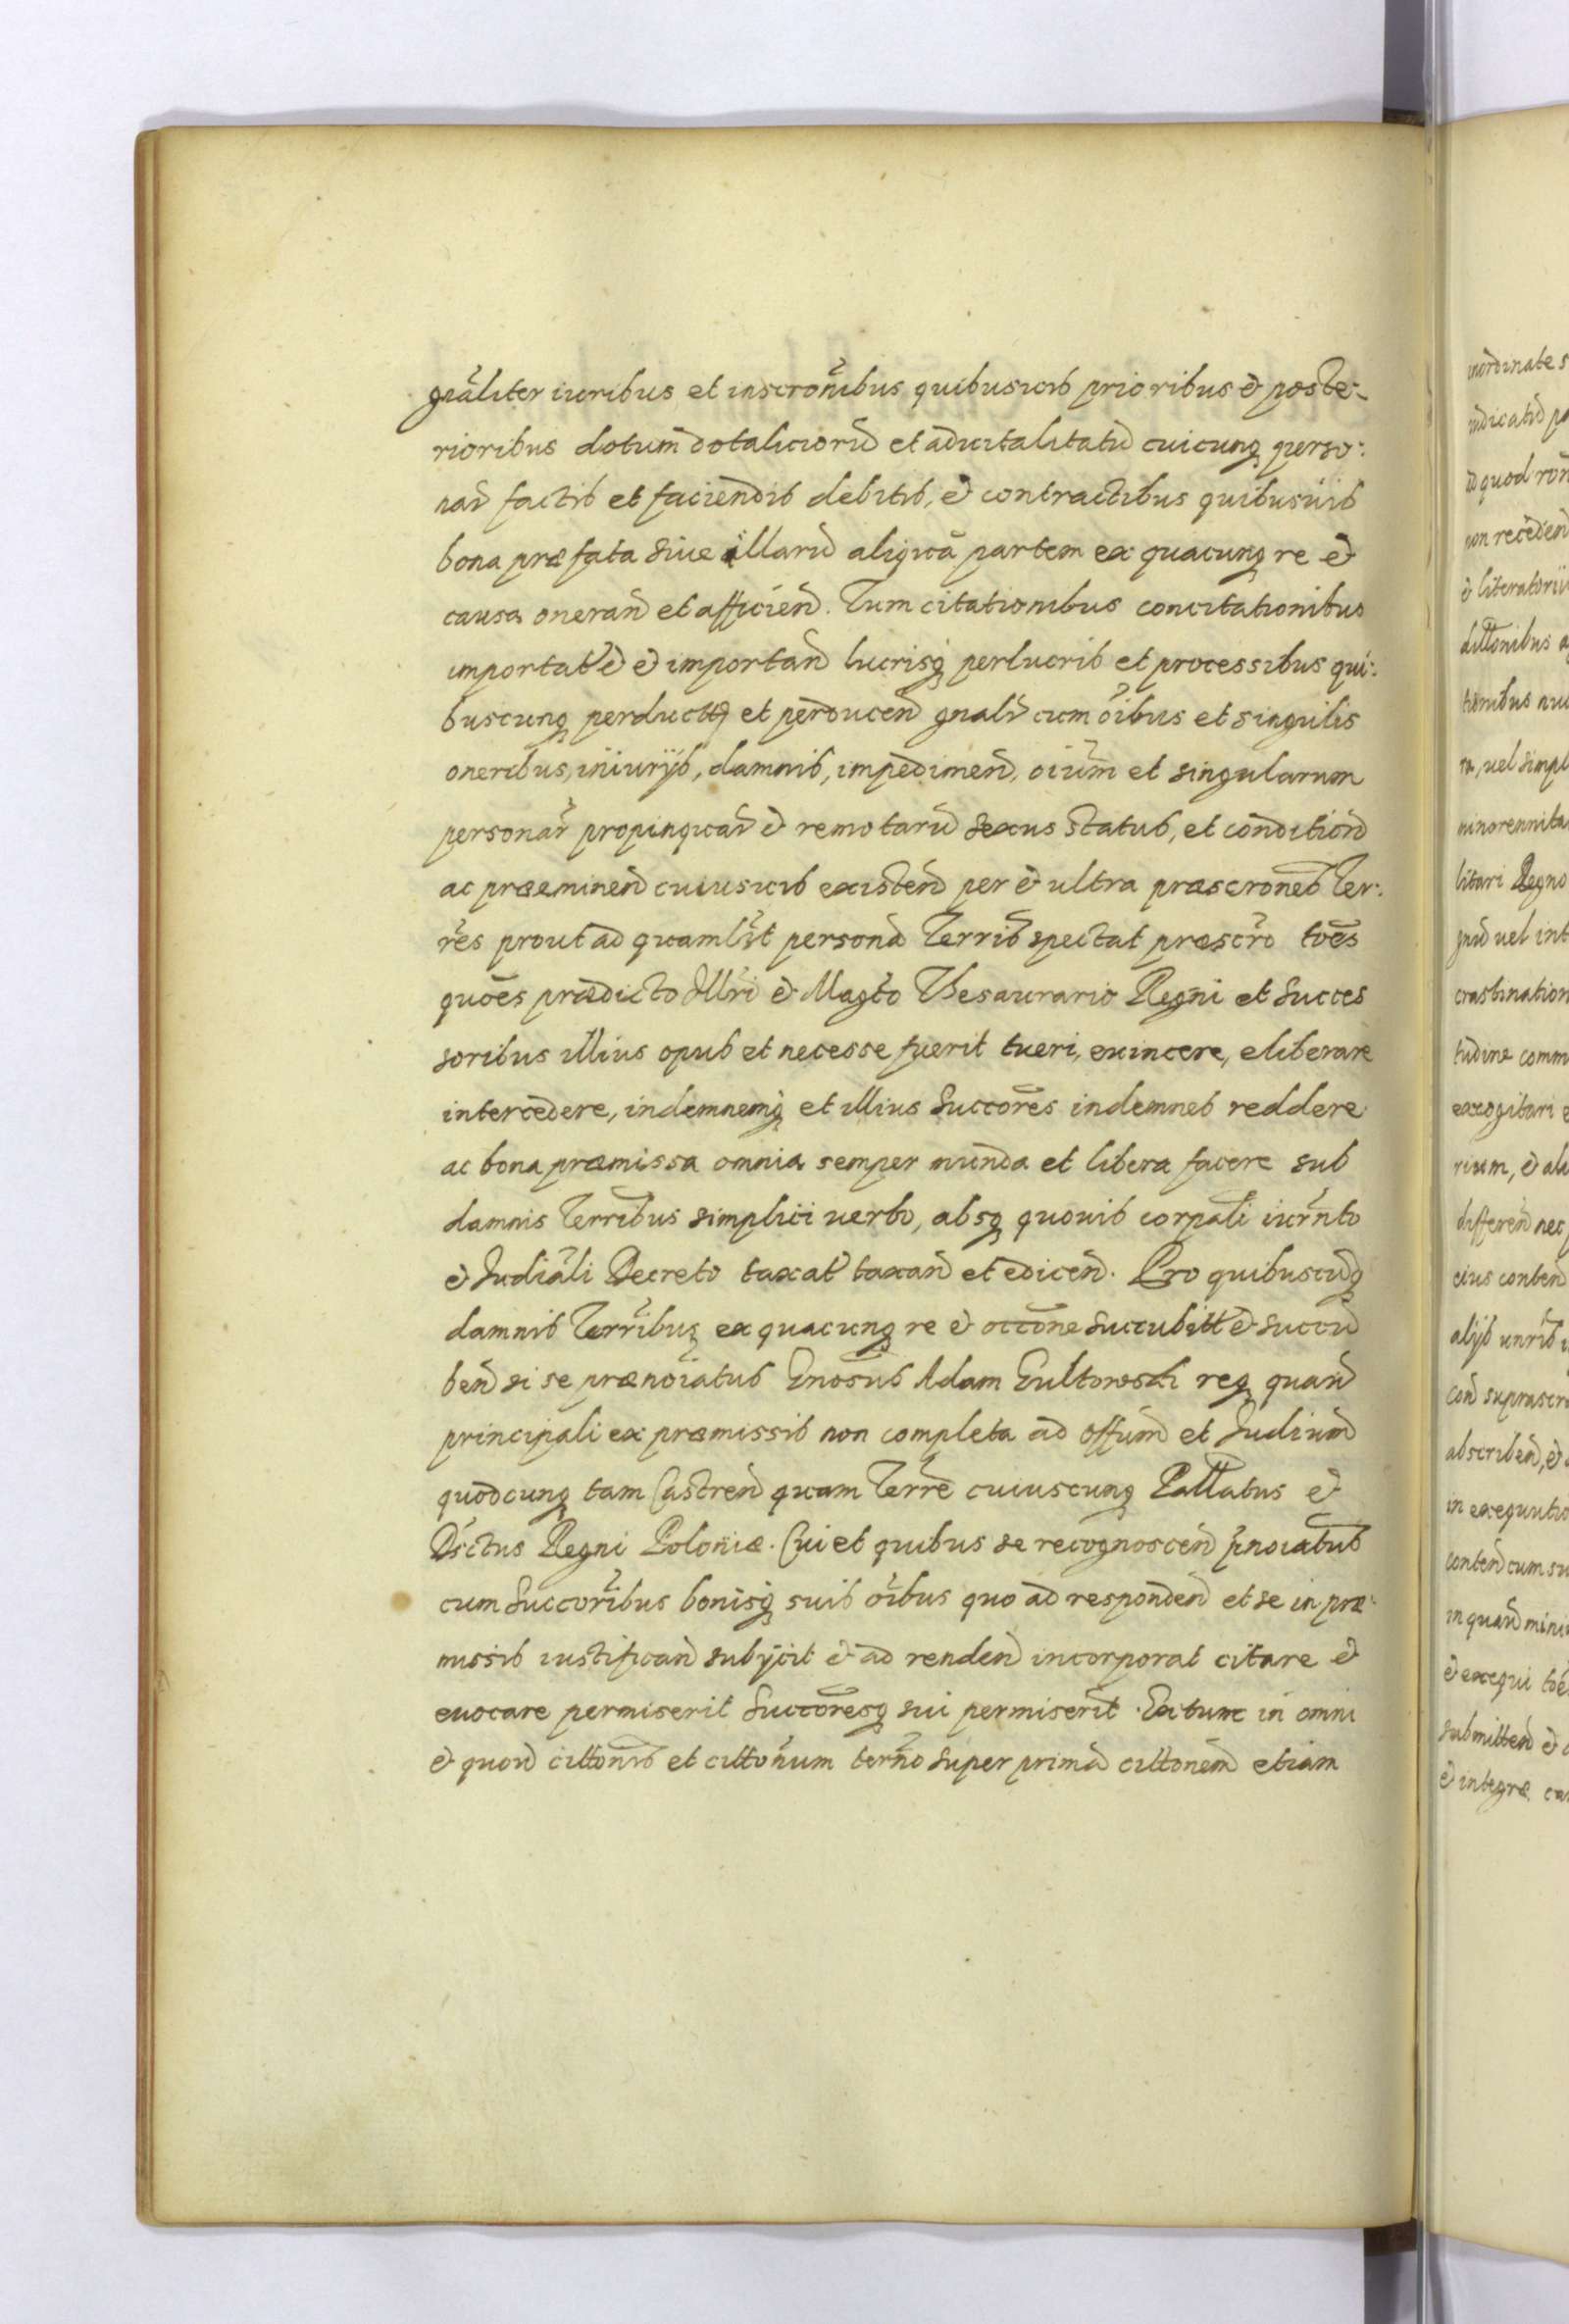 gnāliter iuribus et inscronībus quibusuis prioribus & poste-
rioribus dotum dotaliciorū et aduitalitatū cuicunq perso:
nar̄ factis et faciendis debitis, & contractibus quibusuis
bona præfata siue illarū aliquā partem ex quacunq re &
causa oneran̄ et afficien̄. Tum citationibus concitationibus
importat̄ & & importan̄ lucrisq perlucris et processibus qui:
buscunq perductt et perducen̄ gnalr̄ cum oībus et singulis
oneribus, iniurijs, damnis, impedimen̄, oium̄ et singularum
personar̄ propinquar̄ & remotarū sexus status, et conditiōn
ac præeminen̄ cuiusuis existen̄ per & ultra præscrōnes Ter:
res prout ad quamlt persona Terris̄ spectat præscro toēs
quoēs prædicto Illri & Magco Thesaurario Regni et Succes
soribus illius opus et necesse fuerit tueri, euincere, eliberare
intercedere, indemnemq et illius Succores indemnes reddere
ac bona præmissa omnia semper munda et libera facere sub
damnis Terribus simplici uerbo, absq quouis corpali iurnto
& Judiāli Decreto taxat̄ taxan̄ et edicen̄. Pro quibuscuq
damnis Terribus ex quacunq re & occōne succubitt & succu
ben̄ si se prænoīatus Gnosus Adam Gultowski req quan̄
principali ex præmissis non completa ad offum̄ et Judium̄
quodcunq tam Castren̄ quam Terre cuiuscunq Pallatus &
Dsctus Regni Poloniæ. Cui et quibus se recognoscen̄ pnoiatus
cum Succoribus bonisq suis oībus quo ad responden̄ et se in præ:
missis iustifican̄ subijcit & ad renden̄ incorporat citare &
euocare permiserit Succoresq sui permiserit. Extunc in omni
& quoū cittonis et cittonum terno super prima cittonem etiam
inordinate s
indicatū pa
d quod ron
non receden̄
& literatorii
dittonibus a
tionibus nu
ra, uel simpl
minorennita
litari Regno
gnū uel int
crastination
tudine comm
excogitari e
rium, & ali
differen̄ nec
eius conten̄
alijs unris
con̄ suprascr
abscriben̄, &
in exequutio
conten̄ cum su
in quan̄ mini
& exequi toē
submitten̄ &
& integræ ca